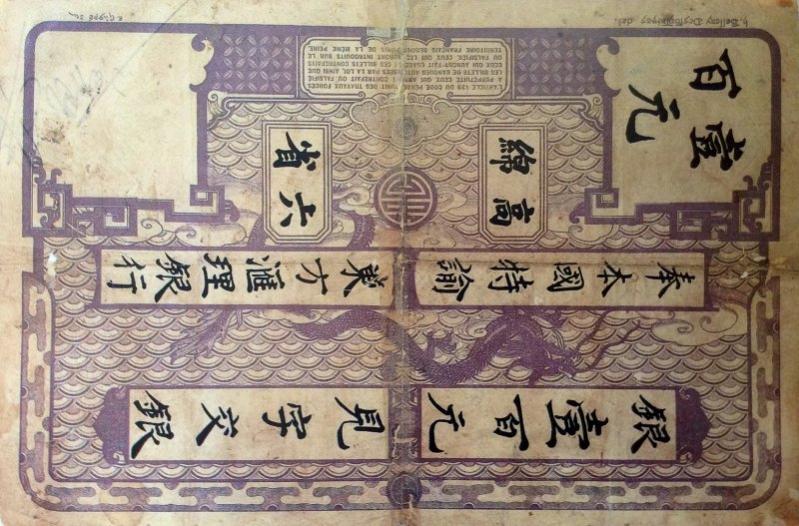 壹百元
高綿
六省
奉本國特諭
東方滙理銀行
銀壹百元
見字交銀
L'ARTICLE 139 DU CODE PENAL PUNIT DES TRAVAUX FORCES
A PERPETUITE CEUX QUI AURONT CONTREFAIT OU FALSIFIE
LES BILLETS DE BANQUES AUTORISEES PAR LA LOI, AINSI QUE
CEUX QUI AURONT FAIT USAGE DE CES BILLETS CONTREFAITS
OU FALSIFIES. CEUX QUI LES AURONT INTRODUITS SUR LE
TERRITOIRE FRANCAIS SERONT PUNIS DE LA MEME PEINE.